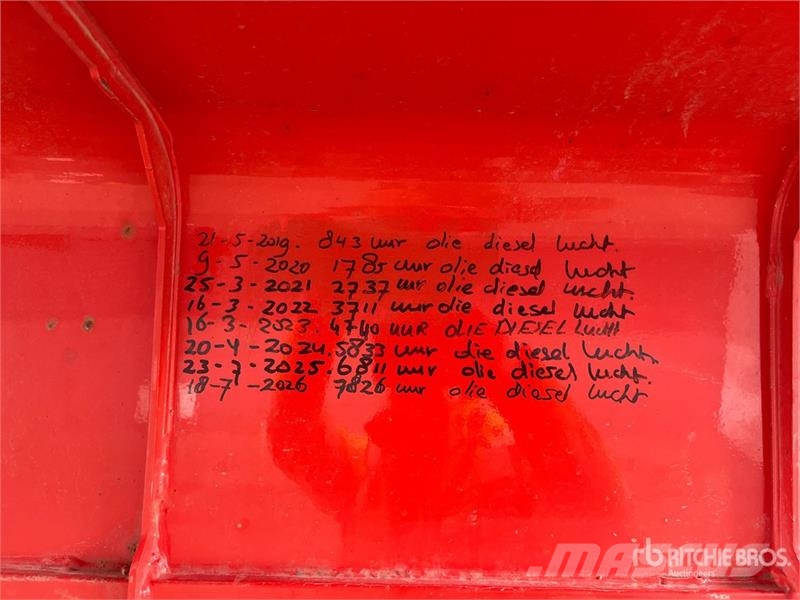 21-5-2019. 843 uur olie diesel lucht.
9-5-2020 1785 uur olie diesel lucht
25-3-2021 2737 uur olie diesel lucht.
16-3-2022 3711 uur olie diesel lucht
16-3-2023. 4740 uur OLIE DIESEL lucht
20-4-2024. 5833 uur olie diesel lucht.
23-7-2025. 6811 uur olie diesel lucht.
18-7-2026 7826 uur olie diesel lucht
MASCUS
rb RITCHIE BROS.
Auctioneers